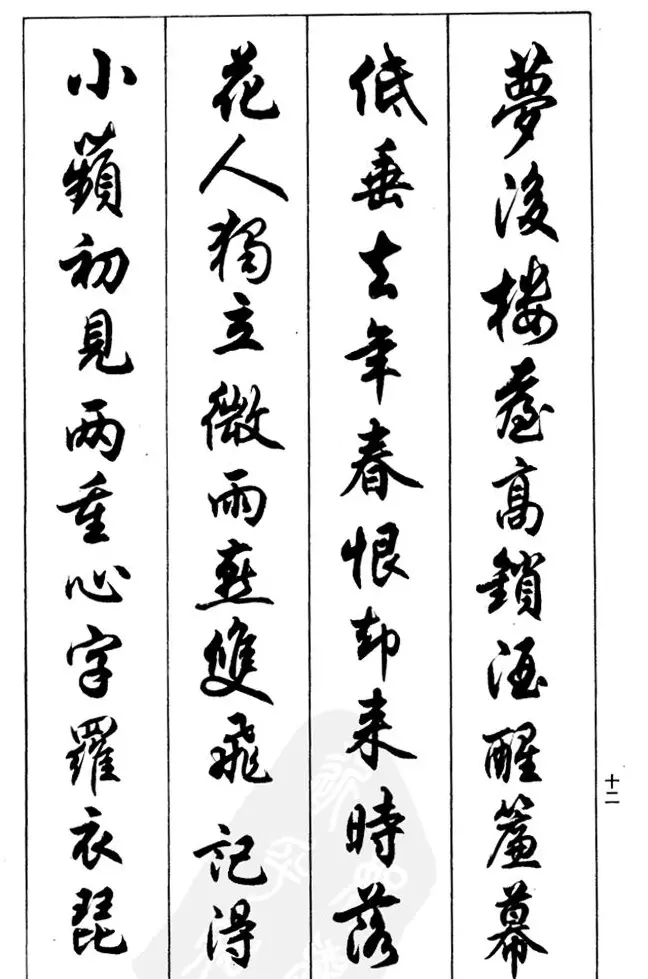 夢後樓臺高鎖酒醒簾幕
低垂去年春恨却来時落
花人獨立微雨燕雙飛記得
小蘋初見兩重心字羅衣琵
十二